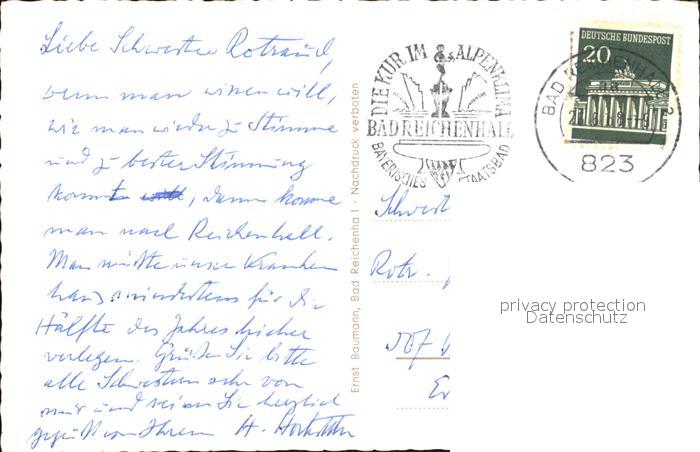 Liebe Schwester Rotraud,
wenn man wissen will,
wie man wieder zu Stimme
und zu bester Stimmung
kommt, dann komme
man nach Reichenhall.
Man müßte unser Kranken
haus mindestens für die
Hälfte des Jahres hierher
verlegen. Grüßen Sie bitte
alle Schwestern sehr von
mir und seien Sie herzlich
gegrüßt von Ihrem H.
Ernst Baumann, Bad Reichenhall - Nachdruck verboten
DIE KUR IM ALPENKLIMA
BAD REICHENHALL
BAYERISCHES STAATSBAD
DEUTSCHE BUNDESPOST
20
BAD REICHENHALL 2
823
Schwest
Rotr.
507
Er
privacy protection
Datenschutz